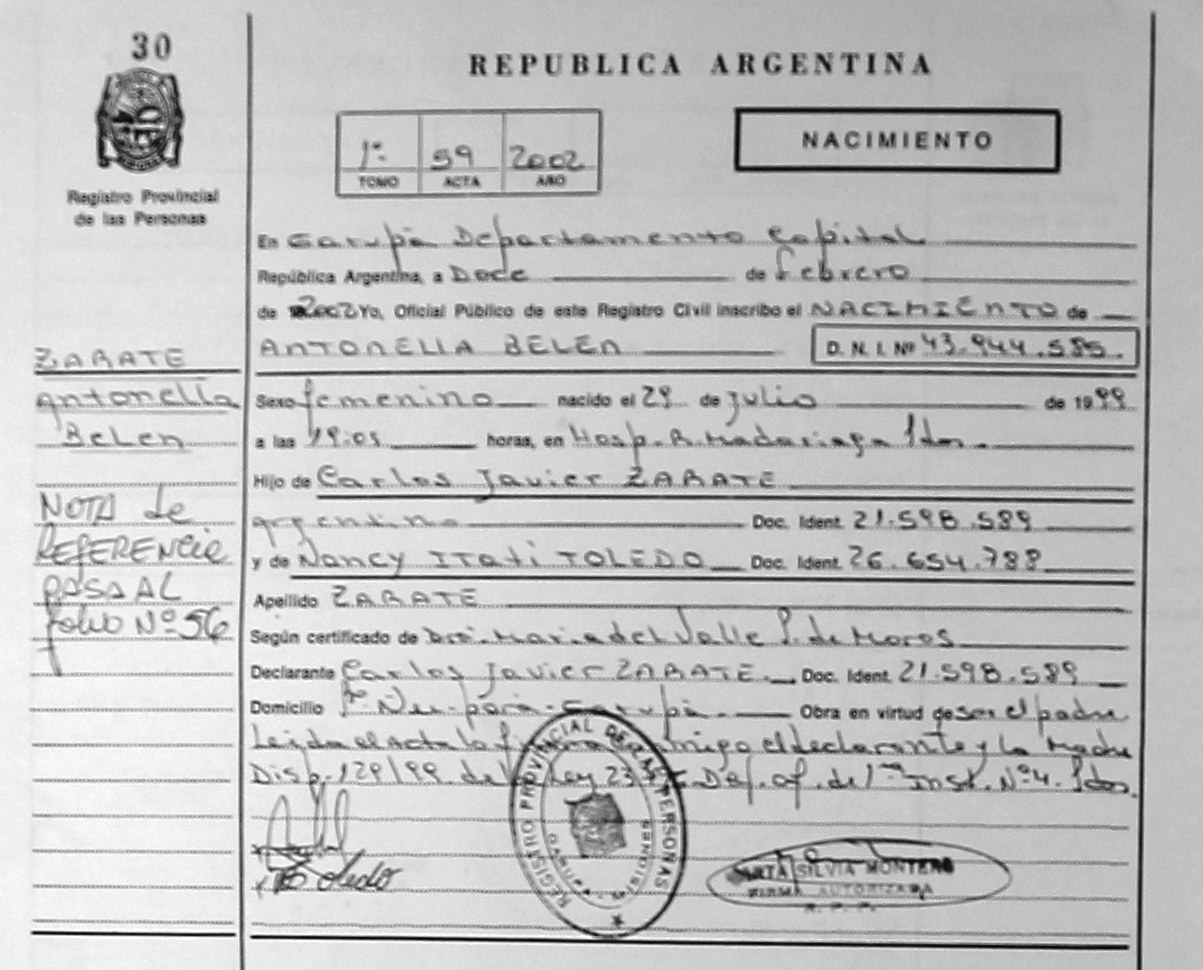 30
REPUBLICA ARGENTINA
1º 59 2002
TOMO ACTA AÑO
NACIMIENTO
Registro Provincial
de las Personas
En Garupá Departamento Capital
República Argentina, a Doce de Febrero
de 2002 Yo, Oficial Público de este Registro Civil inscribo el NACIMIENTO de
ANTONELLA BELEN D.N.I. Nº 43.944.585.
ZARATE
Antonella
Belen
Sexo femenino nacido el 29 de julio de 1999
a las 19:05 horas, en Hosp. R. Madariaga Pdas.
Hijo de Carlos Javier ZARATE
argentino Doc. Ident. 21.598.589
y de Nancy Itatí TOLEDO Doc. Ident. 26.654.788
NOTA de
REFERENCIA
PASA AL
folio Nº 56
Apellido ZARATE
Según certificado de Dra. Maria del Valle P. de Moros
Declarante Carlos Javier ZARATE Doc. Ident. 21.598.589
Domicilio Garupá Obra en virtud de Ser el padre
Leida el Acta la conmigo el declarante y la Madre
Disp. 129/99 de la Ley Def. of. de 1ra Inst. Nº 4. Pdas.
Toledo
REGISTRO PROVINCIAL DE LAS PERSONAS
GARUPA MISIONES
SILVIA MONTERO
FIRMA AUTORIZADA
R.P.P.